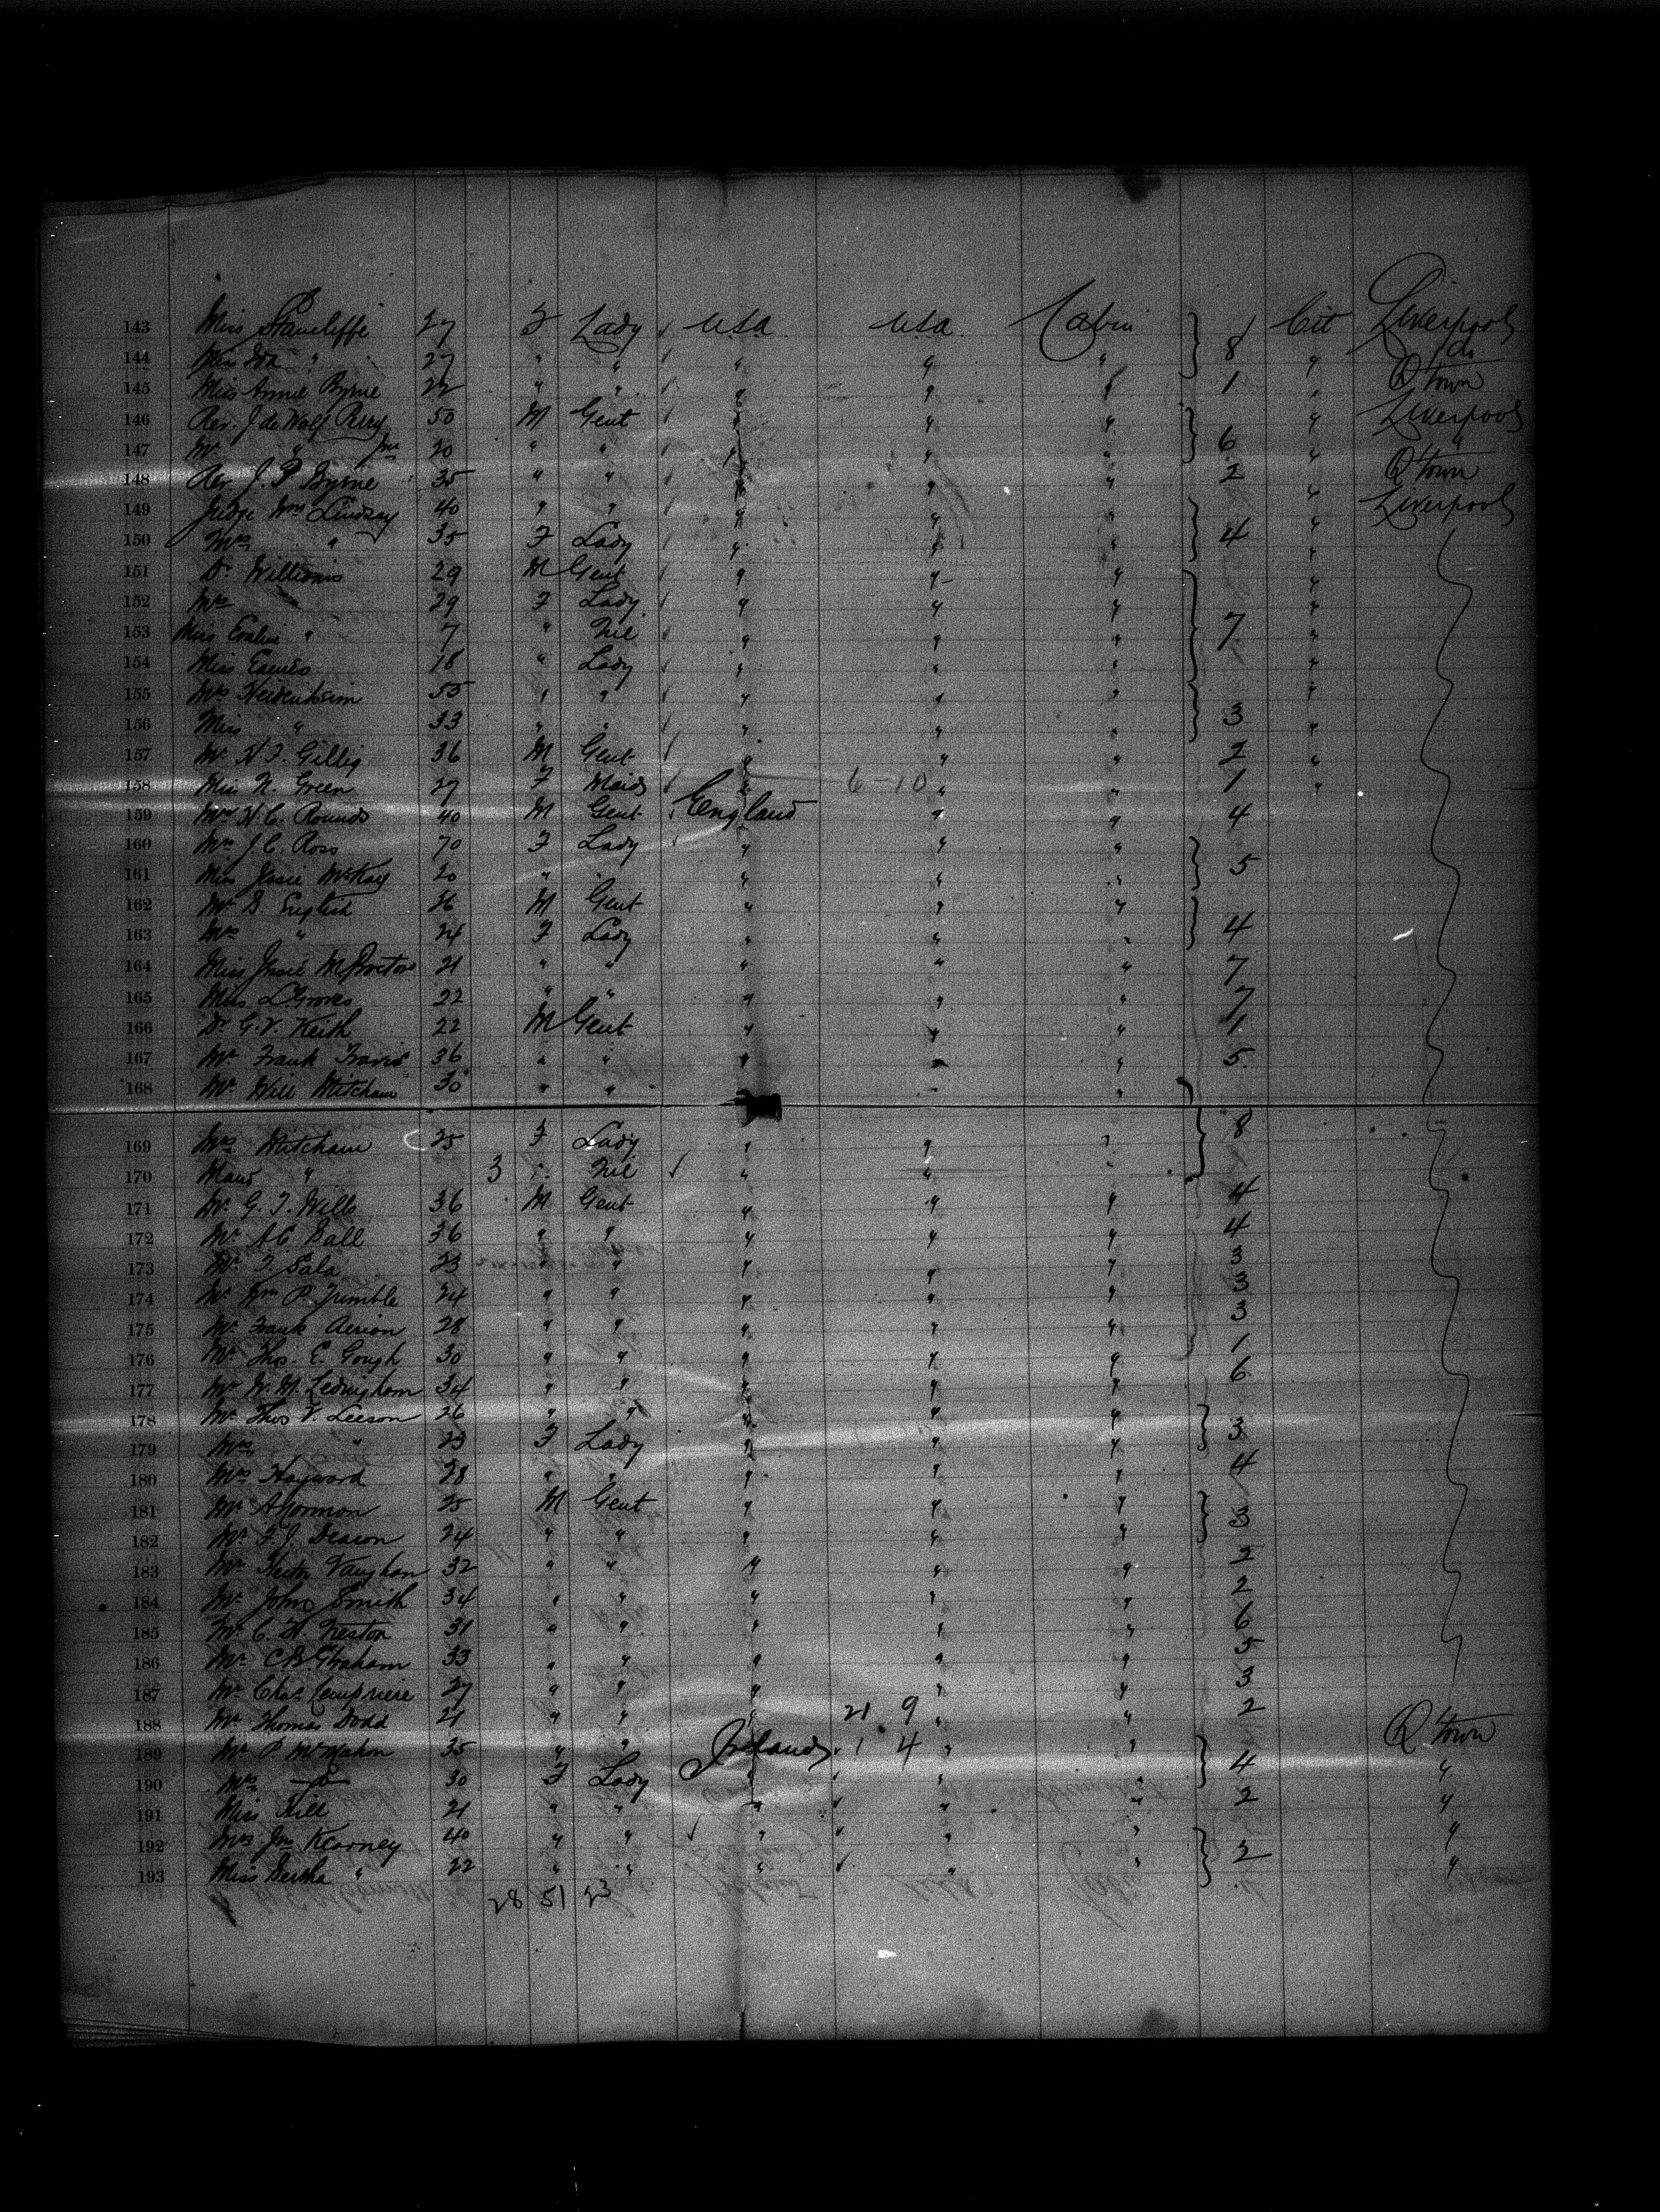 143 Miss Stancliffe 27 F Lady USA USA Cabin 8 Cit Liverpool
144 Miss Ida " 27 " " " " " " do
145 Miss Annie Byrne 22 " " " " " 1 " Q'town
146 Rev. J de Wolf Perry 50 M Gent " " " " Liverpool
147 Mr " Jnr 20 " " " " " 6 " "
148 Rev. J. P. Byrne 35 " " " " " 2 " Q'town
149 Judge Wm Lindsay 40 " " " " " " Liverpool
150 Mrs " 35 F Lady " " " 4 "
151 Dr Williams 29 M Gent " " " "
152 Mrs 29 F Lady " " " "
153 Miss " 7 " Nil " " " 7 "
154 Miss 18 " Lady " " " "
155 Mrs Heidenheim 55 " " " " " "
156 Miss " 33 " " " " " 3 "
157 Mr H. F. Gillig 36 M Gent " " " 2 "
158 Miss N. Green 27 F Maid " 6-10 " " 1 "
159 Mr H. C. Rounds 40 M Gent England " " 4
160 Mrs J. C. Ross 70 F Lady " " "
161 Miss Jessie McKay 20 " " " " " 5
162 Mr D. English 26 M Gent " " "
163 Mrs " 24 F Lady " " " 4
164 Miss Jessie M Proctor 21 " " " " " 7
165 Miss L. Groves 22 " " " " " 7
166 Dr G. V. Keith 22 M Gent " " " 1
167 Mr Frank Travis 36 " " " " " 5
168 Mr Will Mitcham 30 " " " " "
169 Mrs Mitcham 25 F Lady " " " 8
170 Maud " 3 " Nil " " "
171 Mr G. F. Wills 36 M Gent " " " 4
172 Mr A C Ball 36 " " " " " 4
173 Mr F. Sala 23 " " " " " 3
174 Mr Wm P. Trimble 24 " " " " " 3
175 Mr Frank Aerion 28 " " " " " 3
176 Mr Thos. E. Gough 30 " " " " " 1
177 Mr W. M. Ledingham 34 " " " " " 6
178 Mr Thos V. Leeson 26 " " " " "
179 Mrs " 23 F Lady " " " 3
180 Mrs Hayward 28 " " " " " 4
181 Mr A Gorman 25 M Gent " " "
182 Mr F. J. Deacon 24 " " " " " 3
183 Mr Hector Vaughan 32 " " " " " 2
184 Mr John Smith 34 " " " " " 2
185 Mr C. H. Freston 31 " " " " " 6
186 Mr C B. Graham 33 " " " " " 5
187 Mr Chas Lempriere 27 " " " " " 3
188 Mr Thomas Dodd 21 " " " 21 9 " " 2
189 Mr P. McMahon 35 " " Ireland 1 4 " " Q'town
190 Mrs do 30 F Lady " " " 4 "
191 Miss Hill 21 " " " " " 2 "
192 Mrs Jno Kearney 40 " " " " " "
193 Miss Bertha " 22 " " " " " 2 "
28 51 23